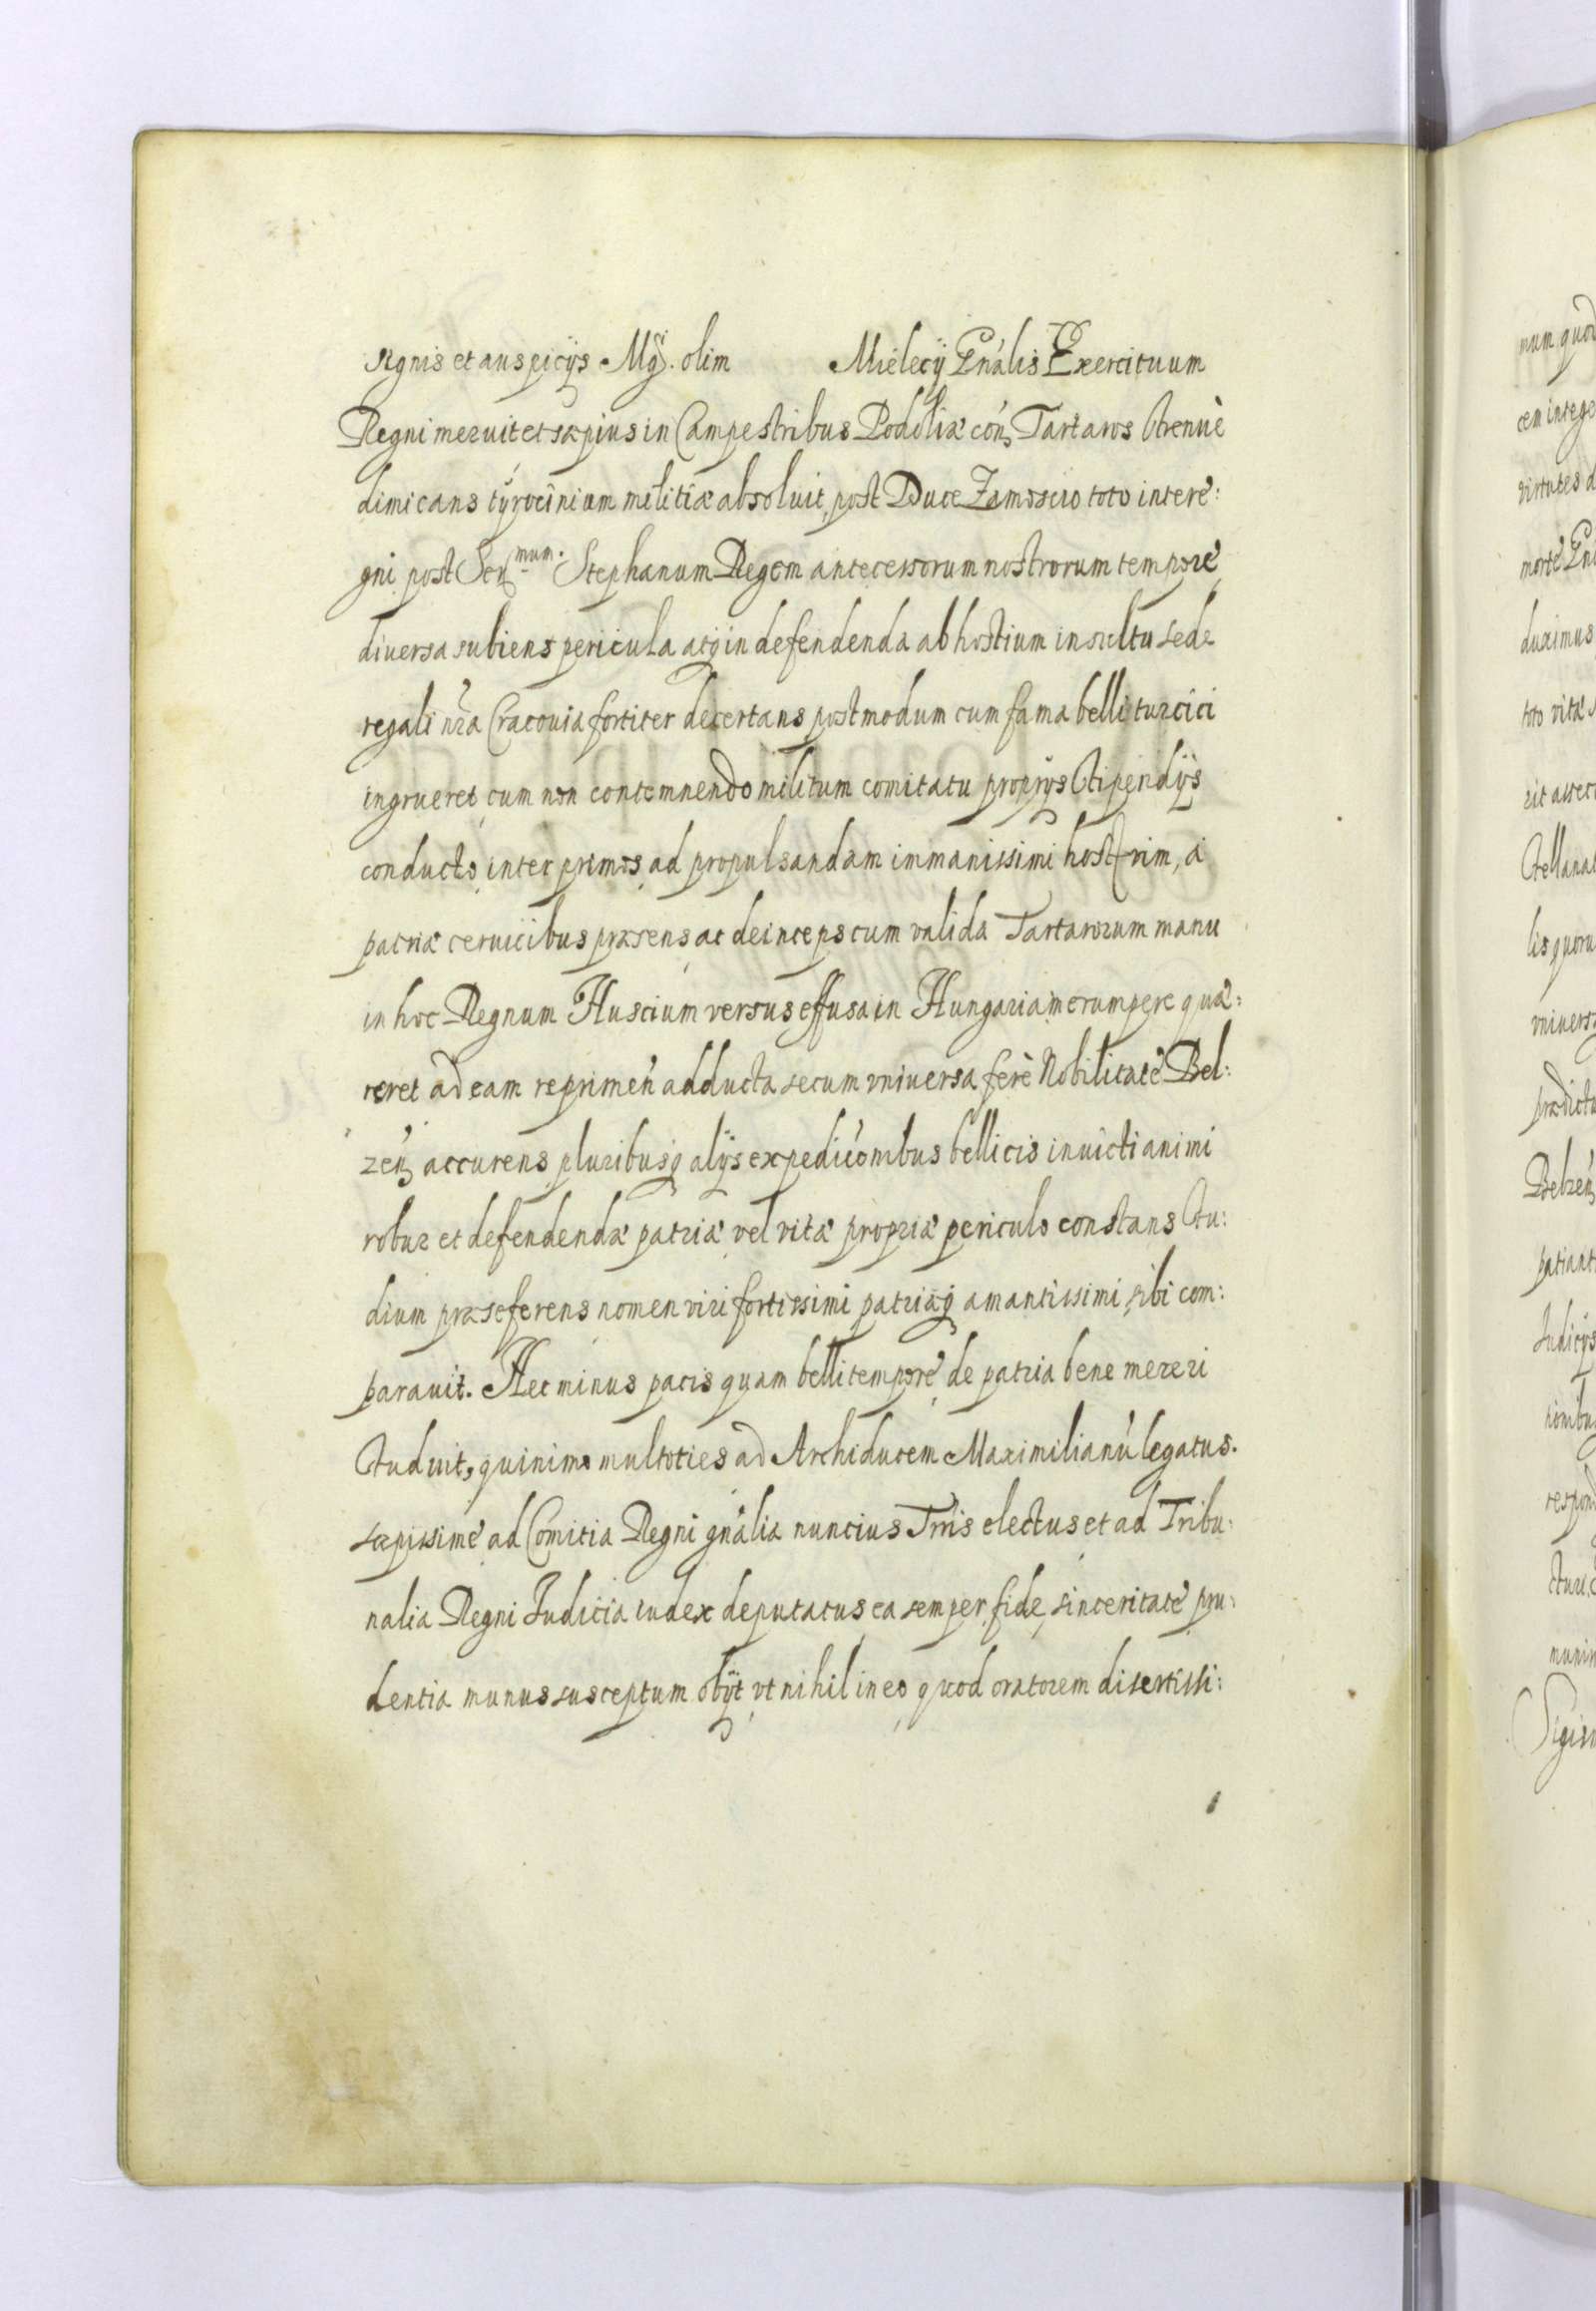 signis et auspicÿs Mgci. olim Mielecÿ Gnális Exercituum
Regni meruit et sæpius in Campestribus Podoliæ cón Tartaros strenuè
dimicans tÿrocinium militiæ absoluit, post Duce Zamoscio toto interé:
gni post Sermum. Stephanum Regem antecessorum nostrorum tempore
diuersa subiens pericula atq in defendenda ab hostium insultu sede
regali nra Cracouia fortiter decertans postmodum cum fama belli turcici
ingrueret cum non contemnendo militum comitatu proprÿs stipendÿs
conducto, inter primos, ad propulsandam immanissimi host vim, à
patriæ ceruicibus præsens ac deinceps cum valida Tartarorum manu
in hoc Regnum Husciúm versus effusa in Hungariam erumpere quæ:
reret ad eam reprimeń adducta secum vniuersa ferè Nobilitate Bel:
zeń accurens pluribusq alÿs expediciombus bellicis inuicti animi
robur et defendendæ patriæ vel vitæ propriæ periculo constans stu:
dium præseferens nomen viri fortissimi patriæq amantissimi, sibi com:
parauit. Nec minus pacis quam belli tempore de patria bene mereri
studuit, quinimo multoties ad Archiducem Maximilianú legatus.
sæpissime ad Comitia Regni gnália nuncius Trris electus et ad Tribu:
nalia Regni Judicia iudex deputatus ea semper fide, sinceritate pru:
dentia munus susceptum obÿt vt nihil in eo quod oratorem disertissi:
num quod
cem integ
virtutes d
morte Gn
duximus
toto vitæ
rit assec
stellana
lis quoru
vniuers
prædict
Belzeń
patiant
Judicÿs
respon
munim
Sigis